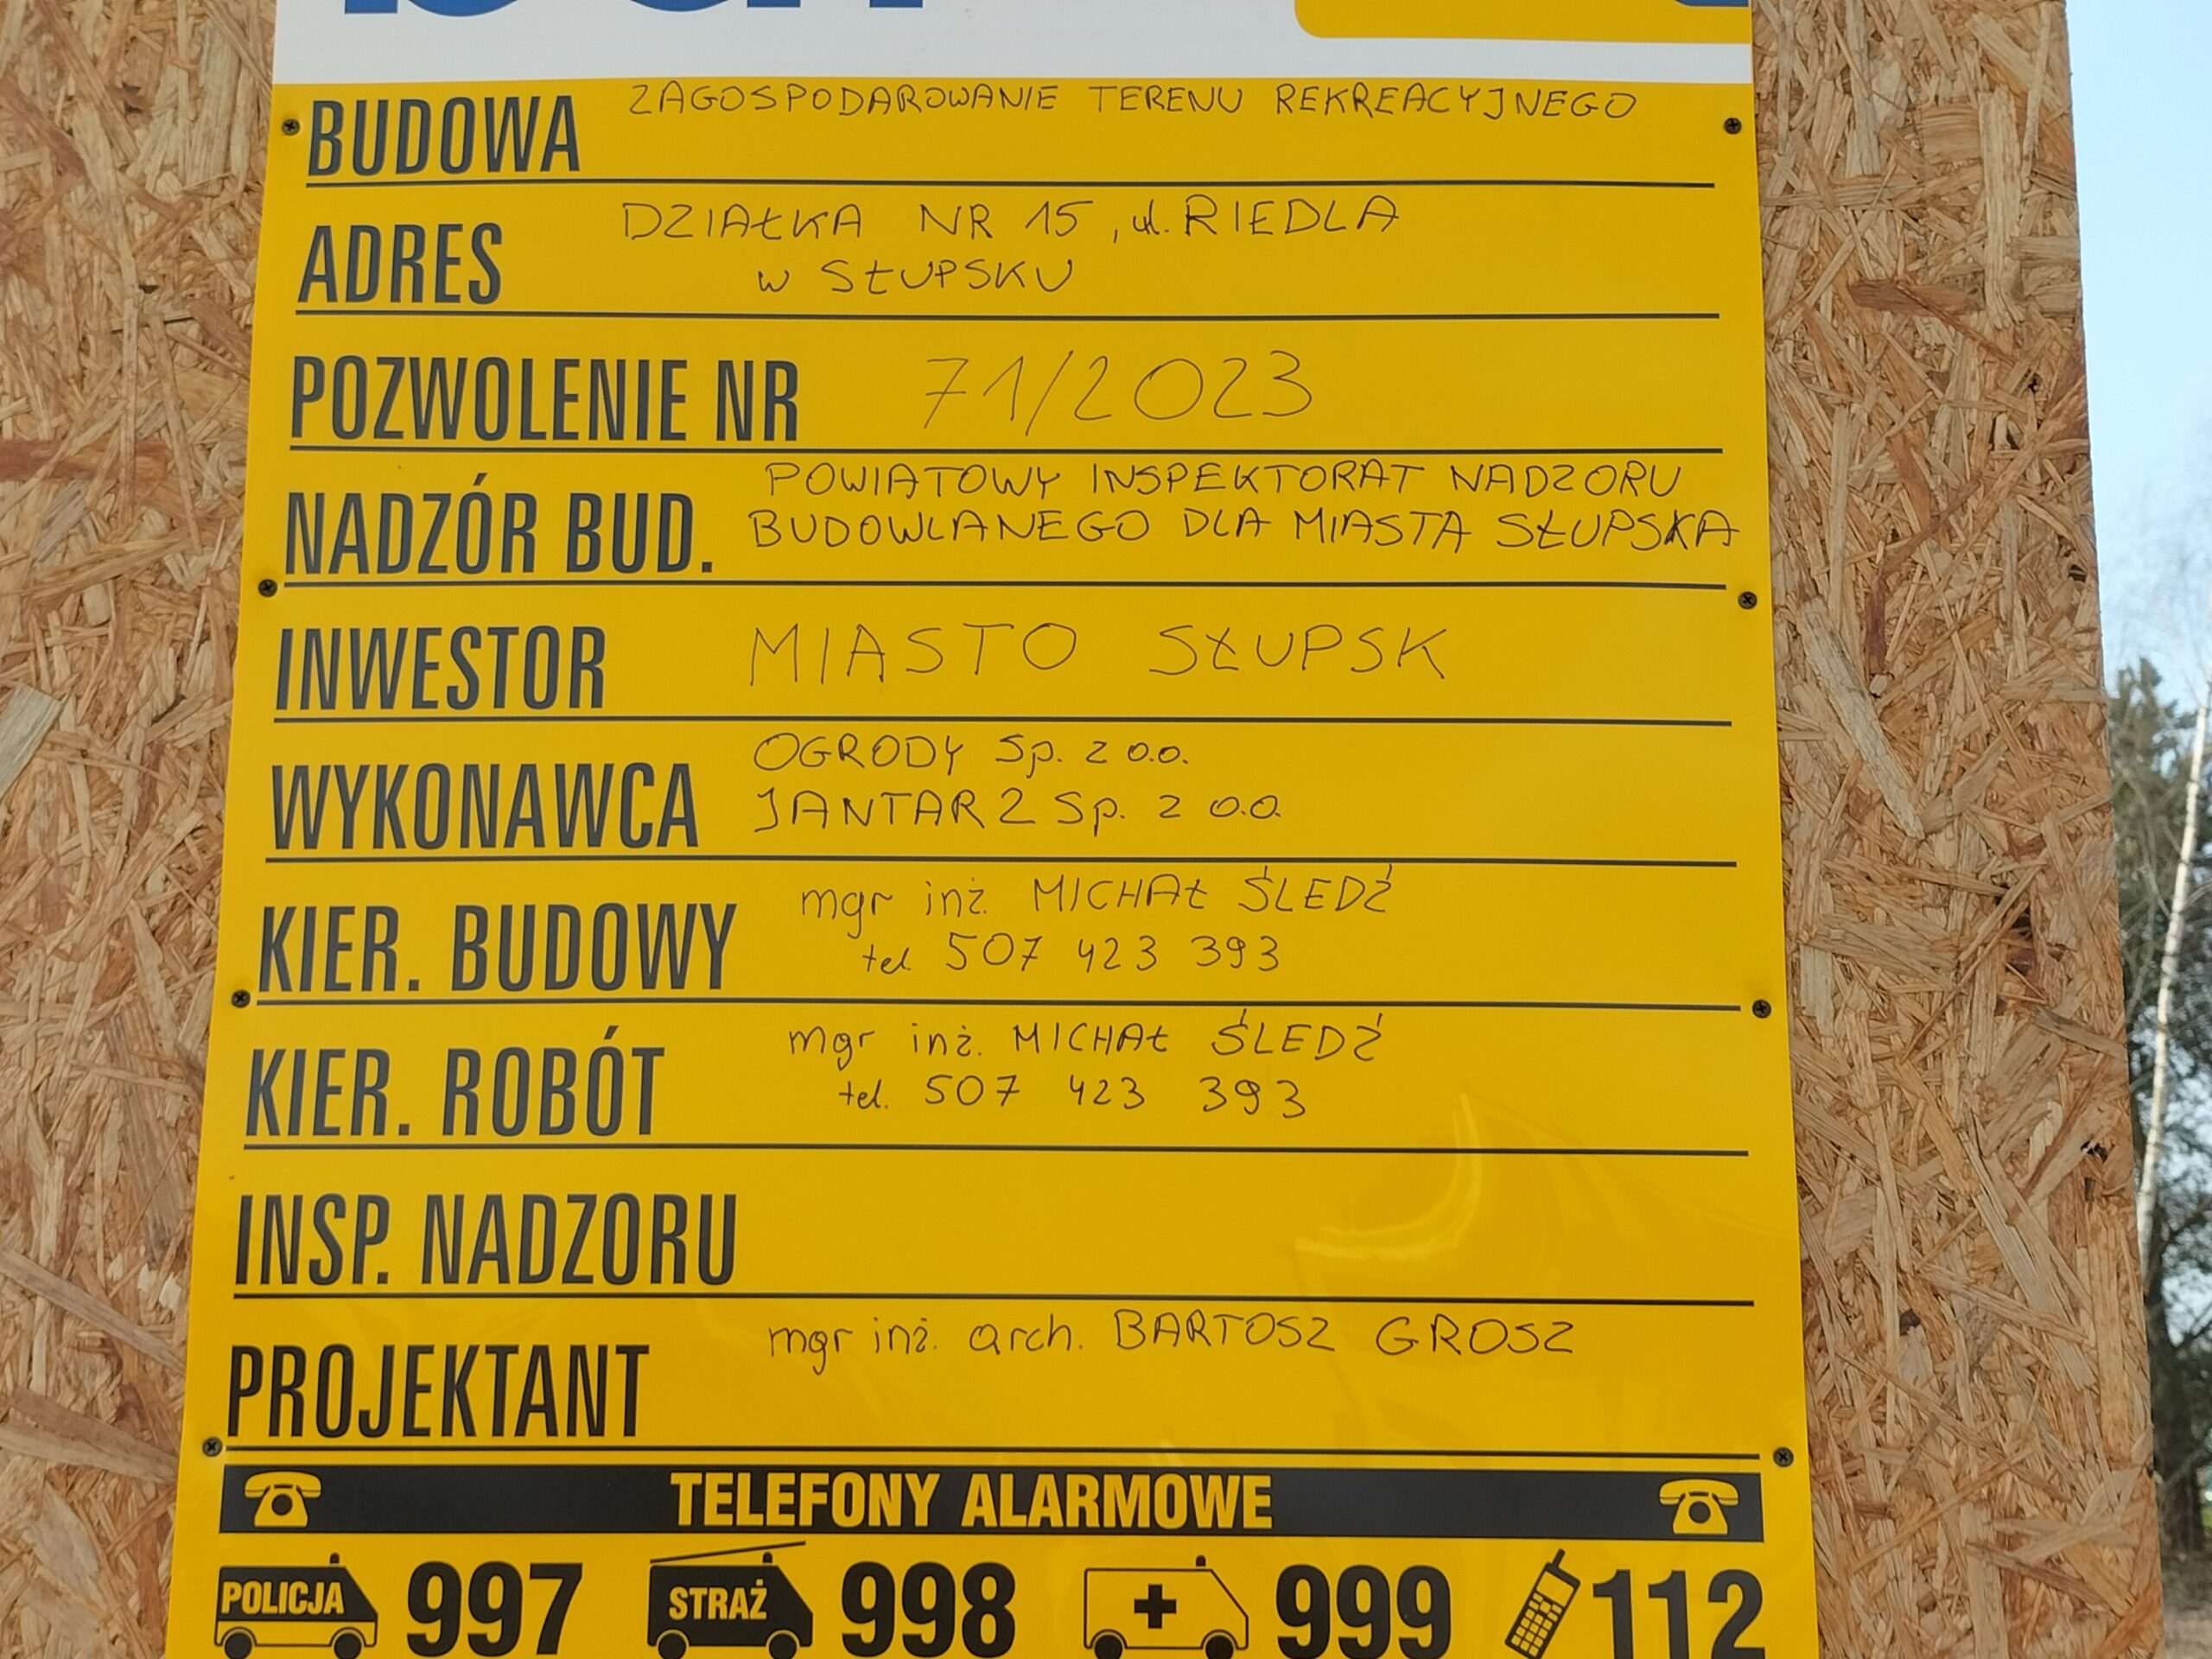 BUDOWA ZAGOSPODAROWANIE TERENU REKREACYJNEGO
ADRES DZIAŁKA NR 15, ul. RIEDLA
w SŁUPSKU
POZWOLENIE NR 71/2023
NADZÓR BUD. POWIATOWY INSPEKTORAT NADZORU
BUDOWLANEGO DLA MIASTA SŁUPSKA
INWESTOR MIASTO SŁUPSK
WYKONAWCA OGRODY Sp. z o.o.
JANTAR 2 Sp. z o.o.
KIER. BUDOWY mgr inż. MICHAŁ ŚLEDŹ
tel. 507 423 393
KIER. ROBÓT mgr inż. MICHAŁ ŚLEDŹ
tel. 507 423 393
INSP. NADZORU
PROJEKTANT mgr inż. arch. BARTOSZ GROSZ
TELEFONY ALARMOWE
POLICJA 997 STRAŻ 998 999 112